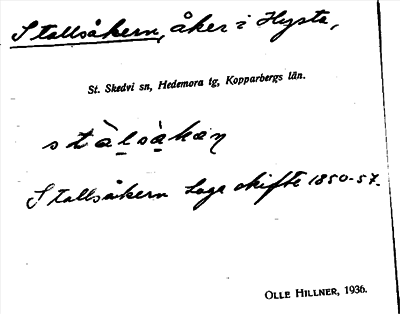 Stallsåkern, åker i Hysta,
St. Skedvi sn, Hedemora tg, Kopparbergs län.
stàḷsàkaɳ
Stallsåkern Laga skifte 1850-57.
OLLE HILLNER, 1936.